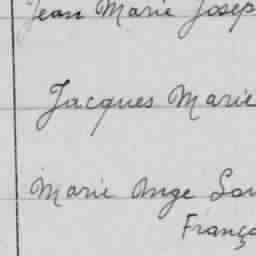 Jean Marie Josep
Jacques Marie
Marie Ange Lou
Franço